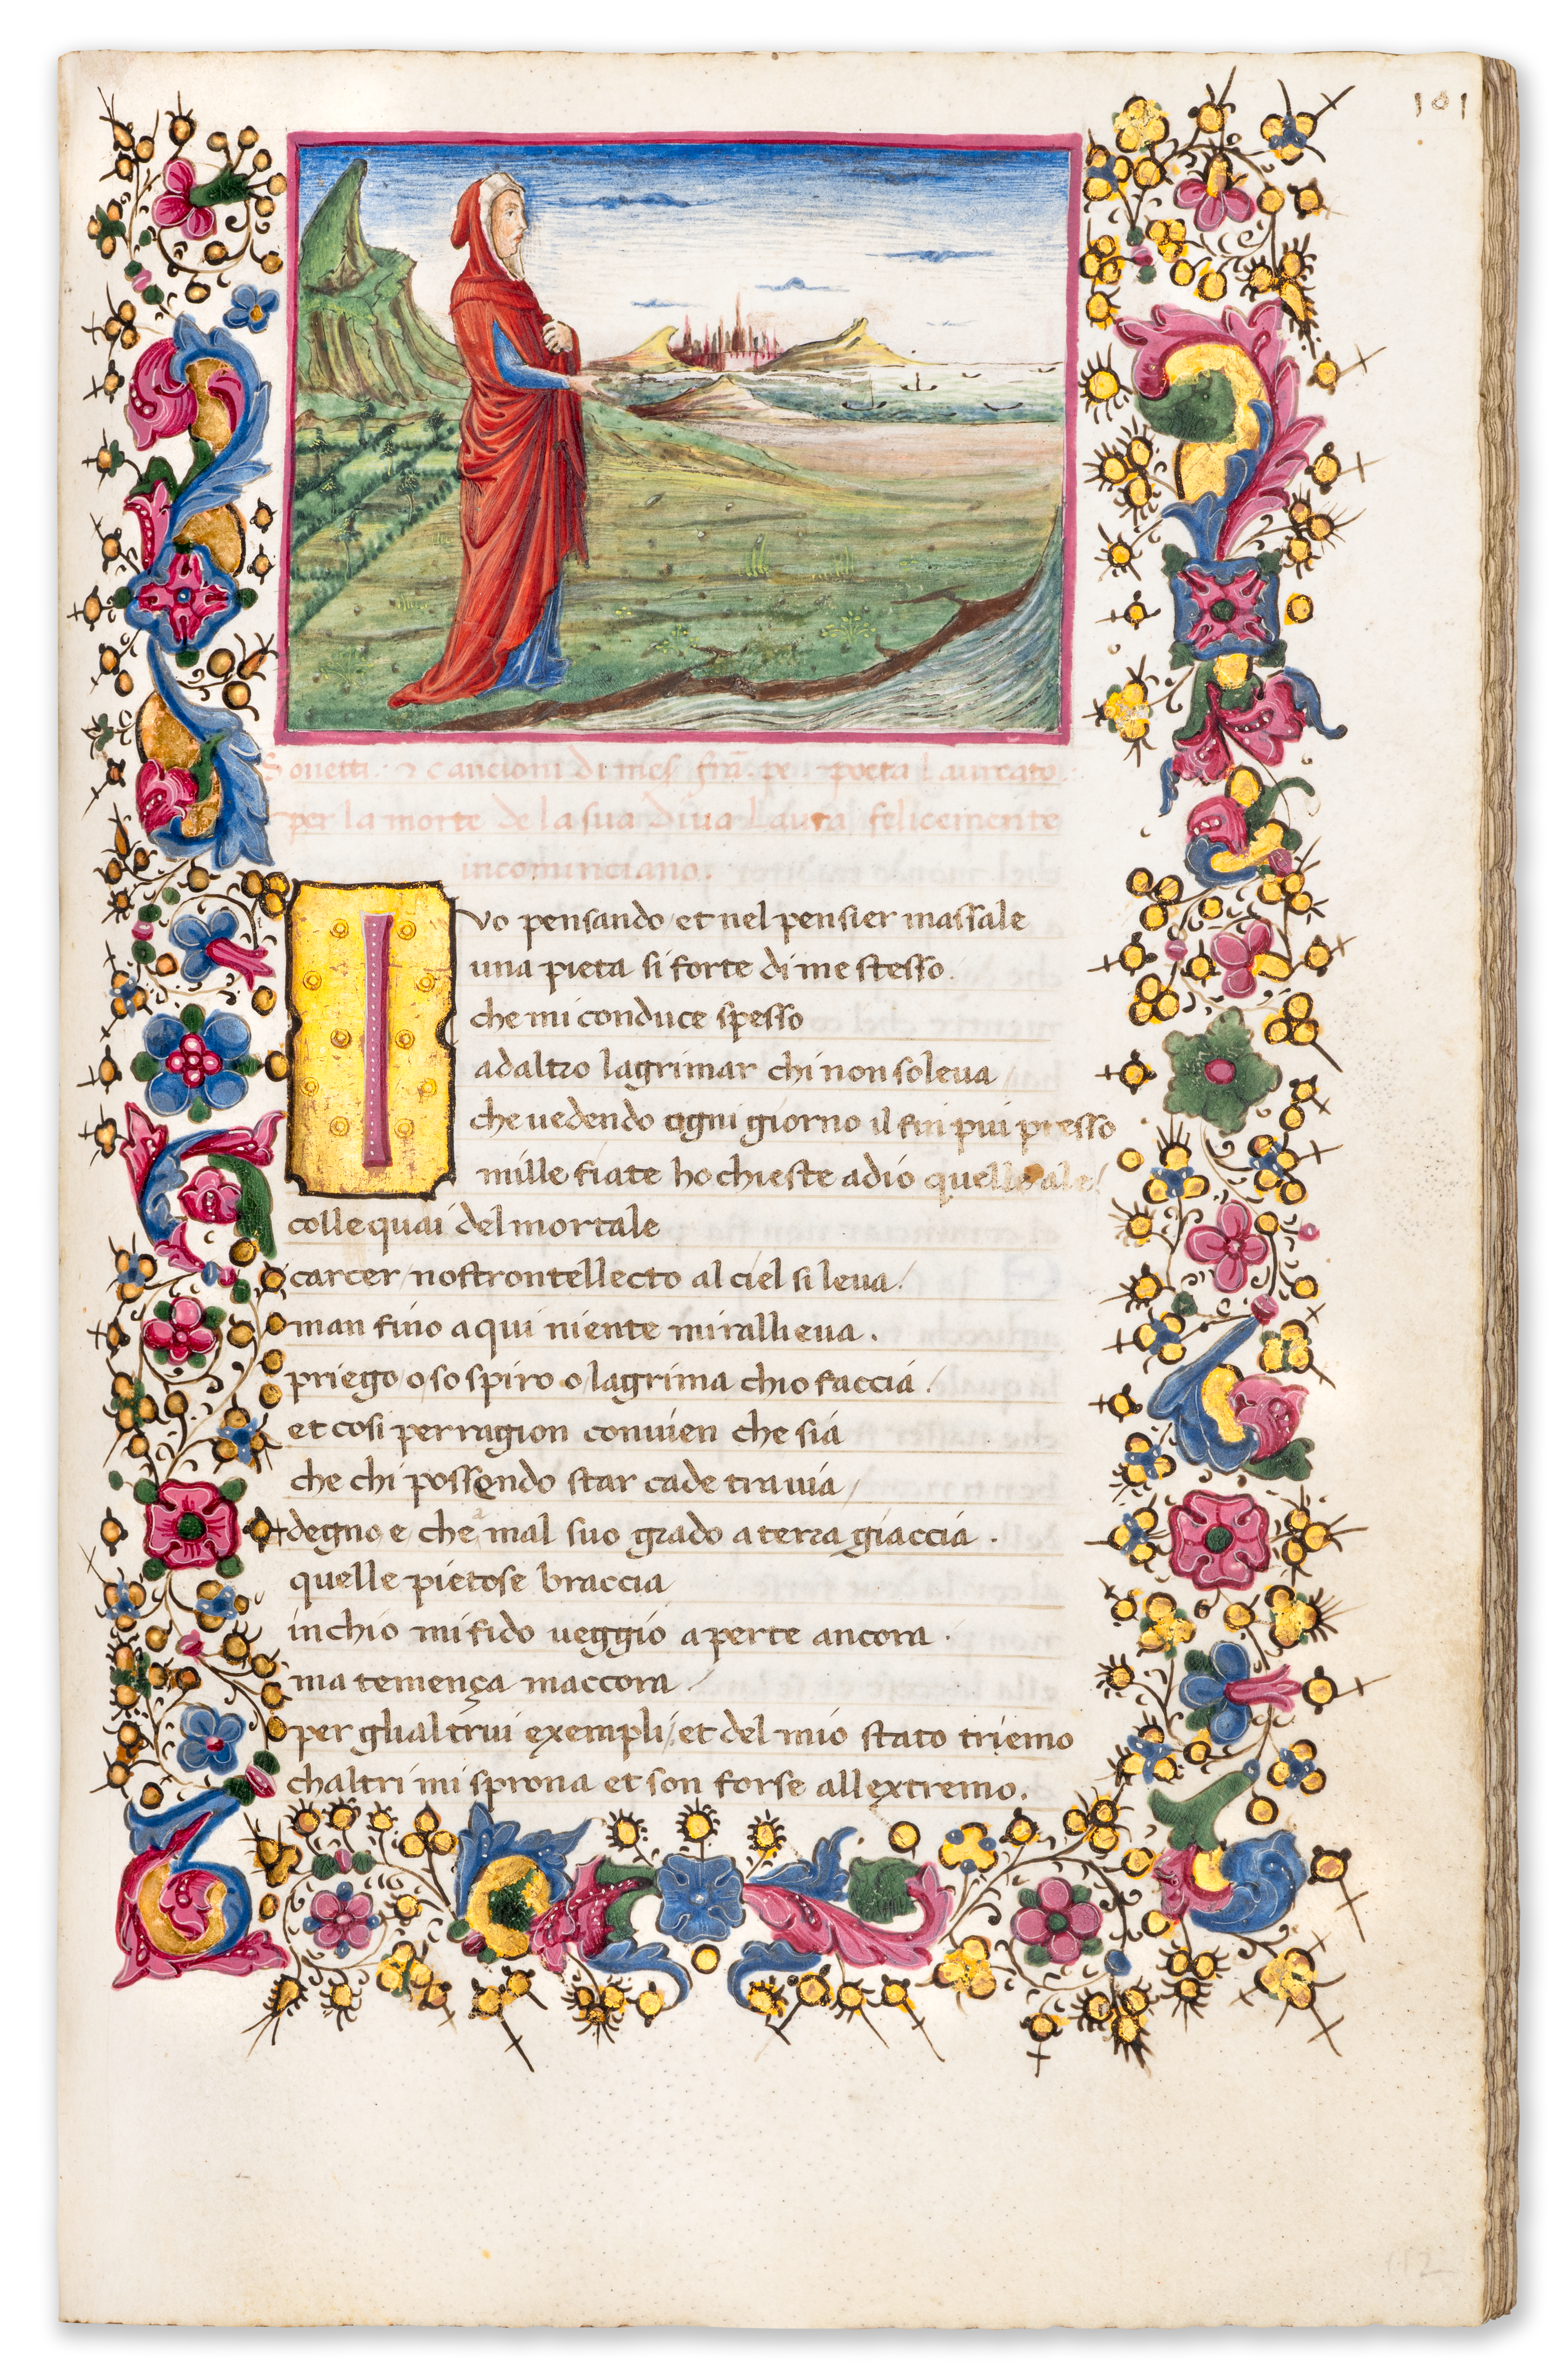 101
Sonetti. & cancioni di mes fra. pe. poeta Laureato
per la morte de la sua Diua Laura felicemente
incominciano.
I vo pensando et nel pensier massale
una pieta si forte di me stesso.
che mi conduce spesso
ad altro lagrimar chi non soleua
che uedendo ogni giorno il fin piu presso
mille fiate ho chieste adio quelle ale/
colle quai del mortale
carcer nostrontellecto al ciel si leua/
man fino a qui niente mi rallieua.
priego o sospiro o lagrima chio faccia.
et cosi per ragion conuien che sia
che chi possendo star cade tra uia/
degno e che mal suo grado a terra giaccia.
quelle pietose braccia
in chio mi fido ueggio aperte ancora.
ma temença maccora
per glialtrui exempli/ et del mio stato triemo
chaltri mi sprona et son forse allextremo.
112